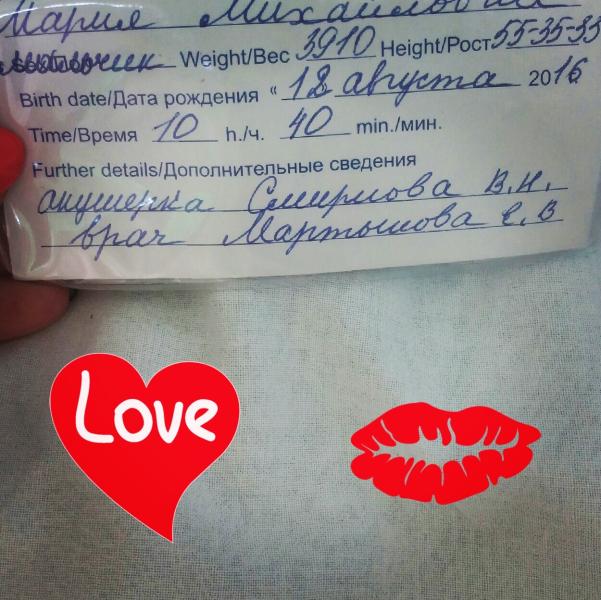 Мария Михайловна
мальчик Weight/Вес 3910 Height/Рост 55-35-35
Birth date/Дата рождения “ 18 августа 2016
Time/Время 10 h./ч. 40 min./мин.
Further details/Дополнительные сведения
акушерка Смирнова В.Н.
врач Мартынова Е.В
Love